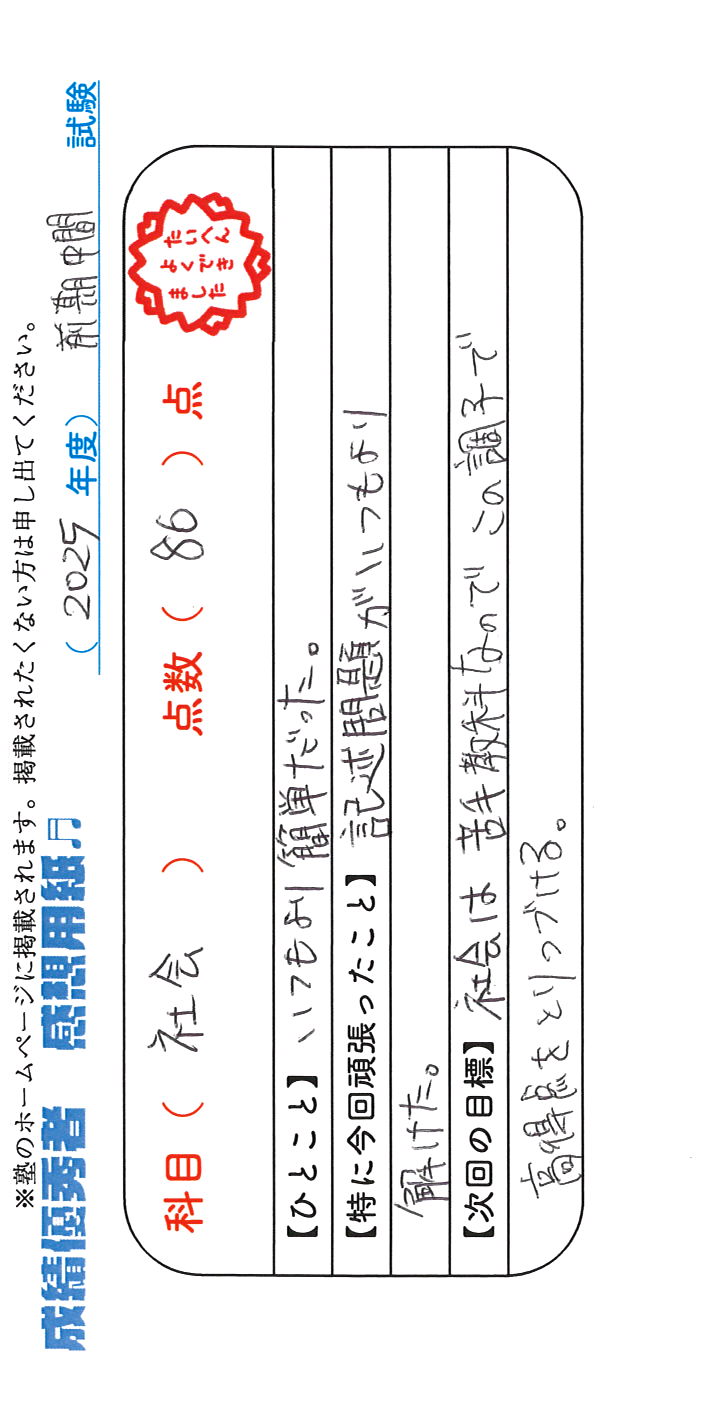 ※塾のホームページに掲載されます。掲載されたくない方は申し出てください。
成績優秀者 感想用紙♬ ( 2025 年度) 前期中間 試験
科目 ( 社会 ) 点数 ( 86 ) 点
たいへん
よくでき
ました
【ひとこと】いつもより簡単だった。
【特に今回頑張ったこと】記述問題がいつもより
解けた。
【次回の目標】社会は苦手教科なのでこの調子で
高得点をとりつづける。